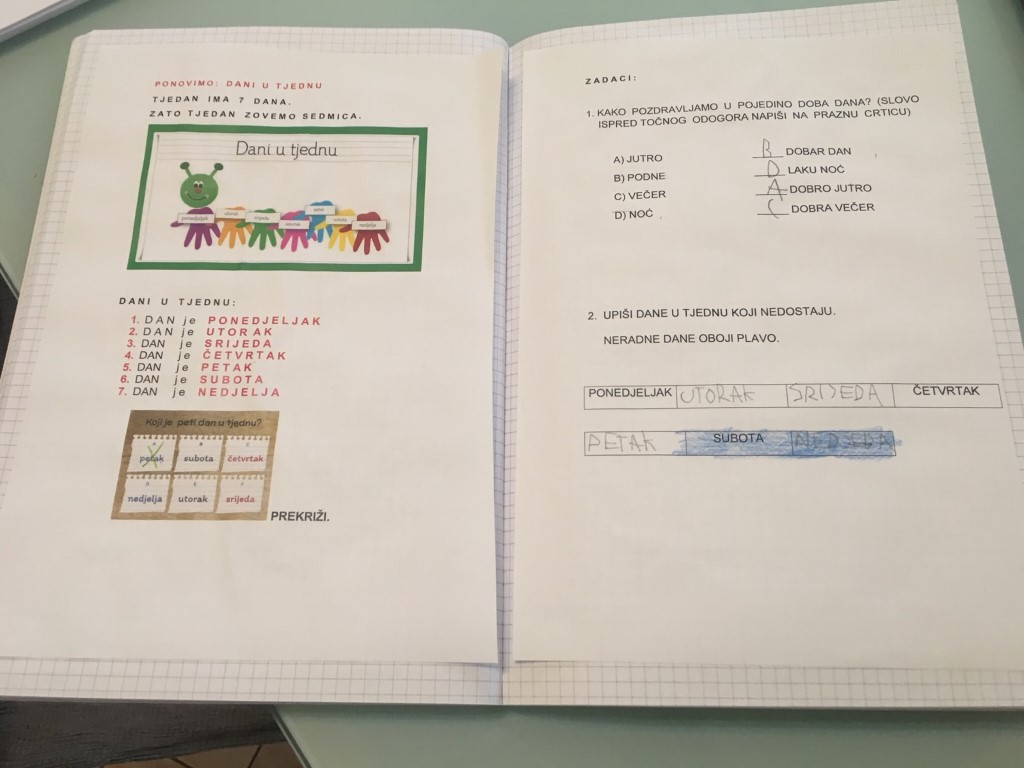 PONOVIMO: DANI U TJEDNU
TJEDAN IMA 7 DANA.
ZATO TJEDAN ZOVEMO SEDMICA.
Dani u tjednu
ponedjeljak utorak srijeda četvrtak petak subota nedjelja
DANI U TJEDNU:
1. DAN je PONEDJELJAK
2. DAN je UTORAK
3. DAN je SRIJEDA
4. DAN je ČETVRTAK
5. DAN je PETAK
6. DAN je SUBOTA
7. DAN je NEDJELJA
Koji je peti dan u tjednu?
petak subota četvrtak
nedjelja utorak srijeda
PREKRIŽI.
ZADACI:
1. KAKO POZDRAVLJAMO U POJEDINO DOBA DANA? (SLOVO
ISPRED TOČNOG ODOGORA NAPIŠI NA PRAZNU CRTICU)
A) JUTRO B DOBAR DAN
B) PODNE D LAKU NOĆ
C) VEČER A DOBRO JUTRO
D) NOĆ C DOBRA VEČER
2. UPIŠI DANE U TJEDNU KOJI NEDOSTAJU.
NERADNE DANE OBOJI PLAVO.
PONEDJELJAK UTORAK SRIJEDA ČETVRTAK
PETAK SUBOTA